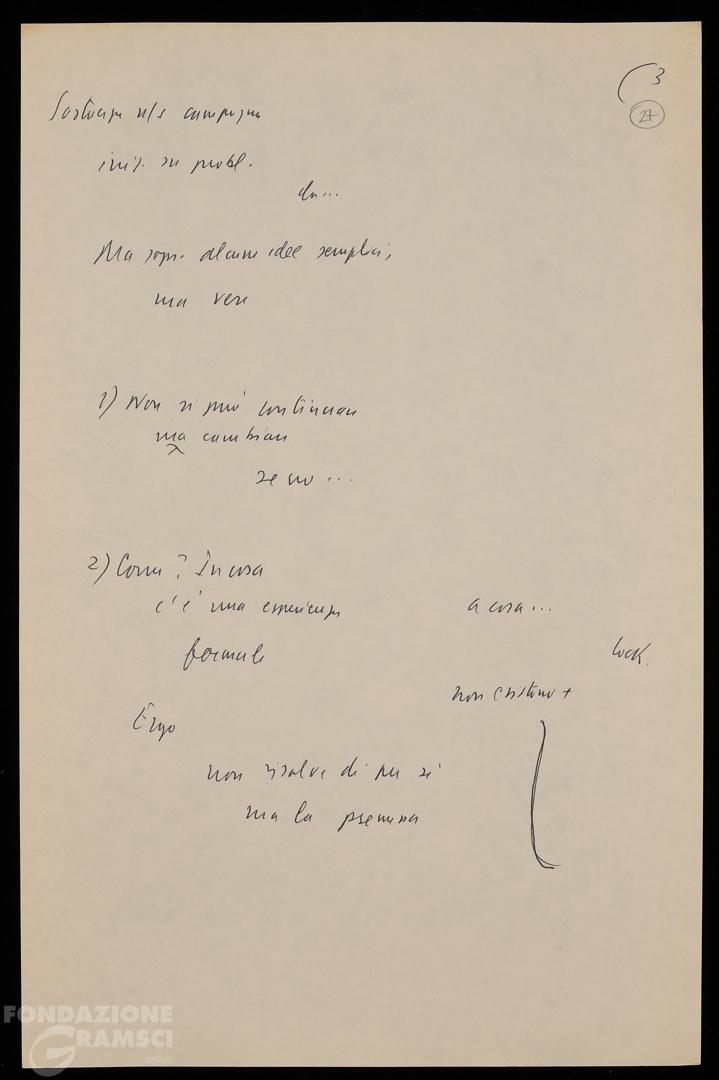 3
27
campagna
su probl.
Ma sopr. alcune idee semplici,
ma vere
1) Non si può continuare
ma cambiare
se no ...
2) Come? In cosa
c'è una esperienza
a cosa ...
formule
Lock.
non esistono +
Ergo
non risolve di per sé
ma la premessa
FONDAZIONE
GRAMSCI
onlus